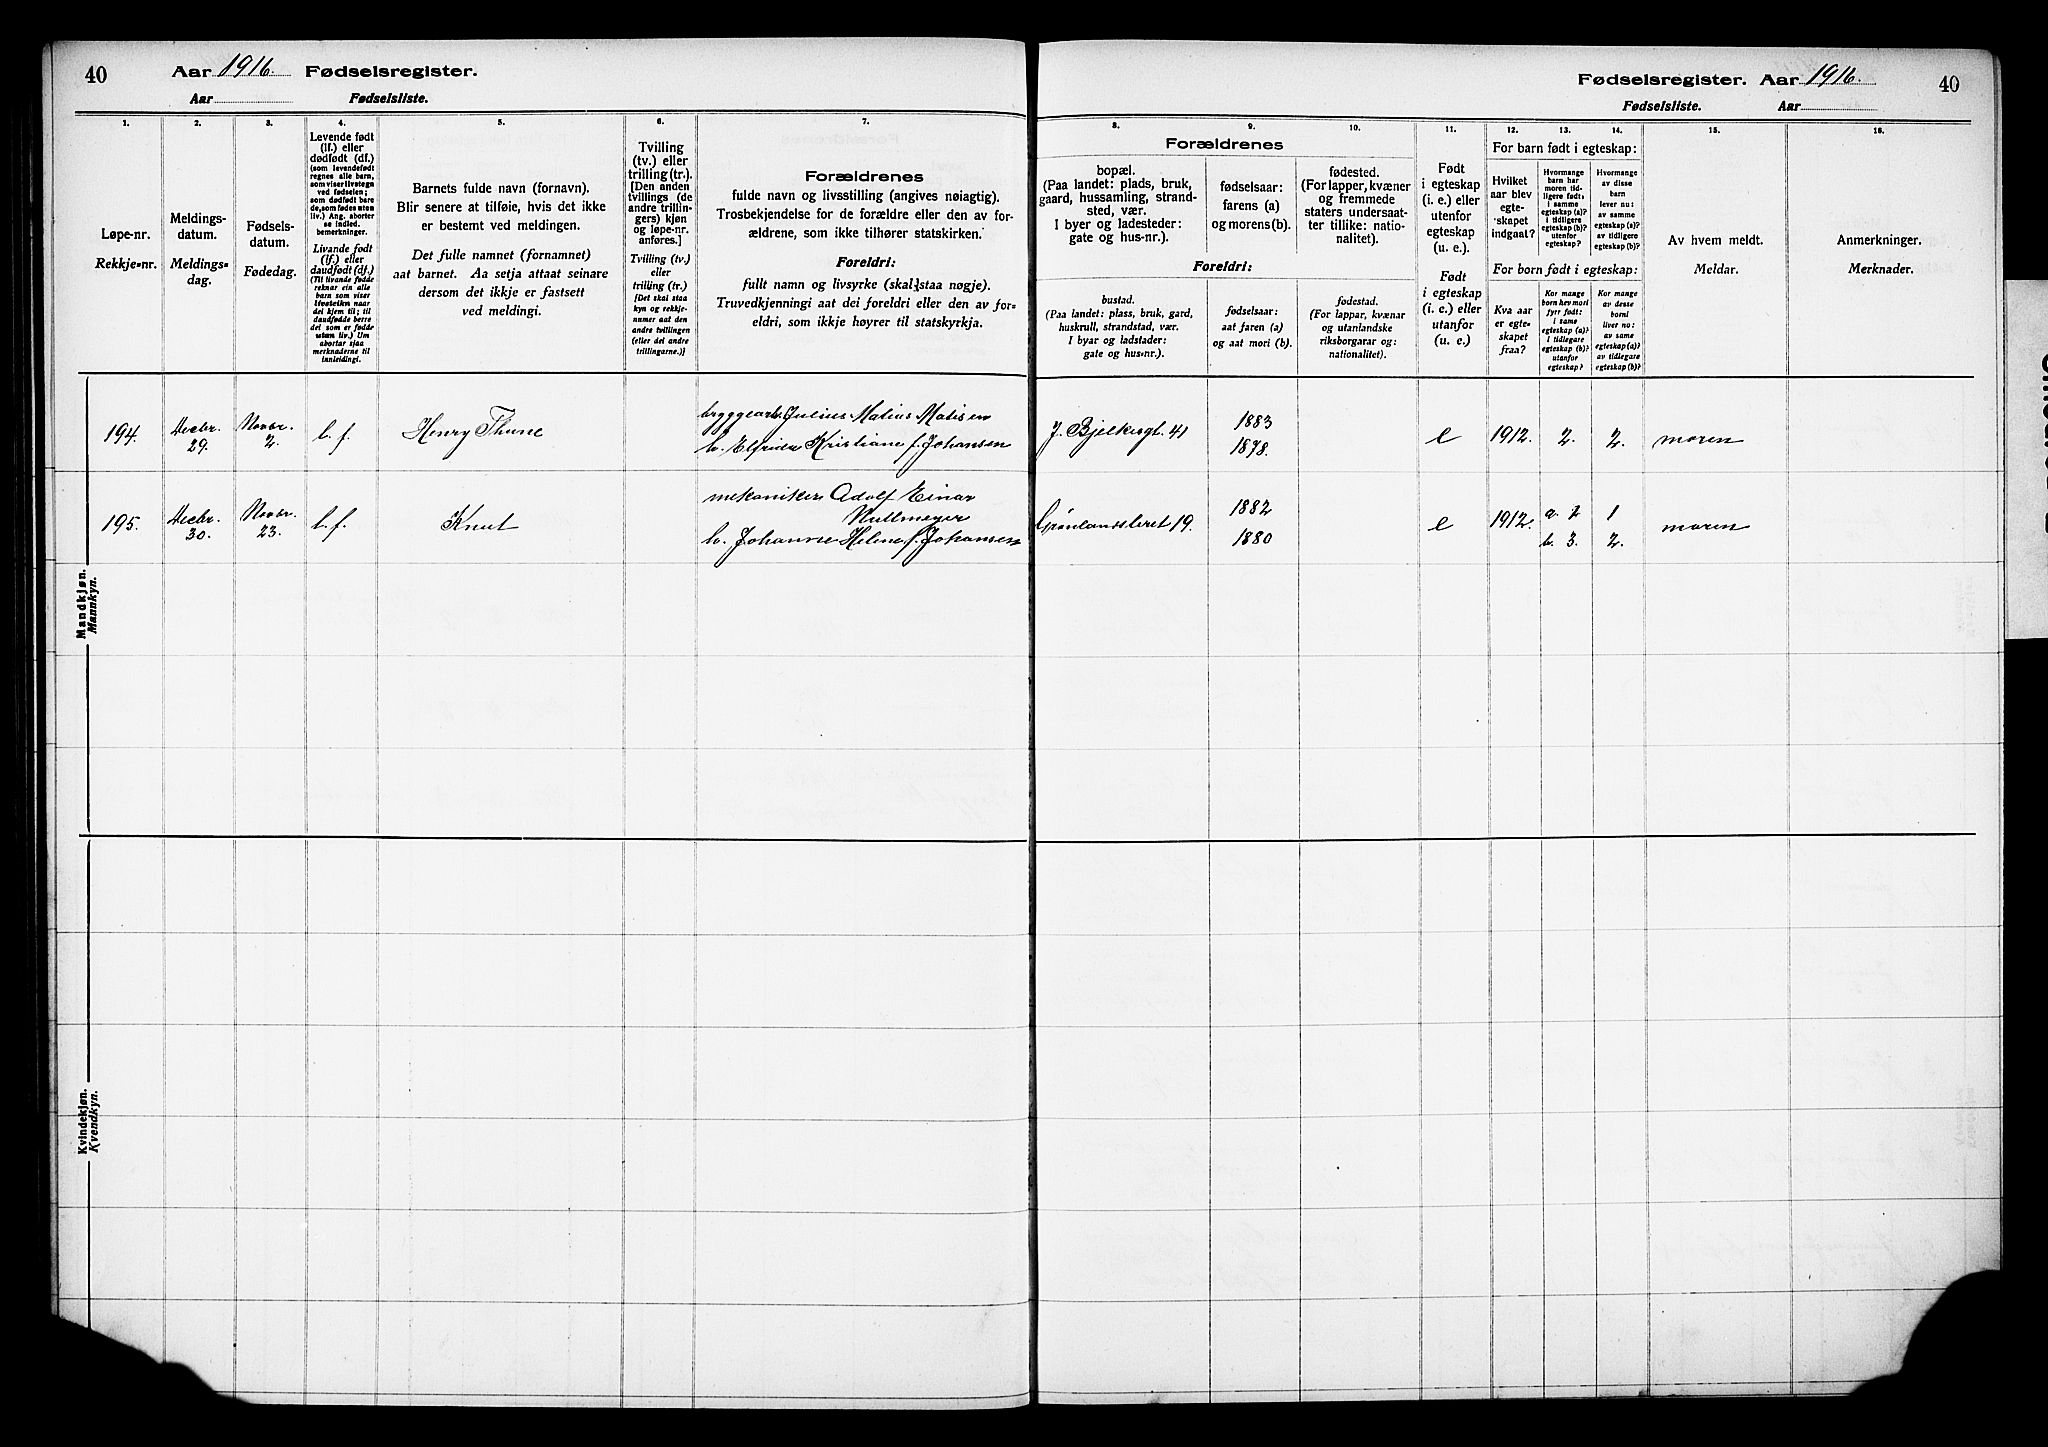 40
Aar 1916. Fødselsregister.
Aar Fødselsliste.
1.
2.
3.
4.
5.
6.
7.
Løpe-nr.
Rekkje-nr.
Meldings-
datum.
Meldings-
dag.
Fødsels-
datum.
Fødedag.
Levende født
(lf.) eller
dødfødt (df.)
(som levendefødt
regnes alle barn,
som viser livstegn
ved fødselen;
som dødfødt bare
de, som fødes uten
liv.) Ang. aborter
se indled.
bemerkninger.
Livande født
(lf.) eller
daudfødt (df.)
(Til livande fødde
reknar ein alle
born som viser
livsteikn naar
dei kjem til; til
daudfødde berre
dei som er fødde
utan liv.) Um
abortar sjaa
merknaderne til
innleidingi.
Barnets fulde navn (fornavn).
Blir senere at tilføie, hvis det ikke
er bestemt ved meldingen.
Det fulle namnet (fornamnet)
aat barnet. Aa setja attaat seinare
dersom det ikkje er fastsett
ved meldingi.
Tvilling
(tv.) eller
trilling (tr.).
[Den anden
tvillings (de
andre trillin-
gers) kjøn
og løpe-nr.
anføres.]
Tvilling (tv.)
eller
trilling (tr.)
[Det skal staa
kyn og rekkje-
numer aat den
andre tvillingen
(eller dei andre
trillingarne.)]
Forældrenes
fulde navn og livsstilling (angives nøiagtig).
Trosbekjendelse for de forældre eller den av for-
ældrene, som ikke tilhører statskirken.
Foreldri:
fullt namn og livsyrke (skal staa nøgje).
Truvedkjenningi aat dei foreldri eller den av for-
eldri, som ikkje høyrer til statskyrkja.
Mandkjøn.
Mannkyn.
194.
Decbr.
29.
Novbr.
2.
l. f.
Henry Thune
bryggearb. Julius Matius Matisen
h. Elfrida Kristiane f. Johansen
195.
Decbr.
30.
Novbr.
23.
l. f.
Knut
mekaniker Adolf Einar
Nullmeyer
h. Johanne Helene f. Johansen
Kvindekjøn.
Kvendkyn.
Fødselsregister. Aar 1916.
40
Fødselsliste. Aar
8.
9.
10.
11.
12.
13.
14.
15.
16.
Forældrenes
bopæl.
(Paa landet: plads, bruk,
gaard, hussamling, strand-
sted, vær.
I byer og ladesteder:
gate og hus-nr.).
fødselsaar:
farens (a)
og morens (b).
fødested.
(For lapper, kvæner
og fremmede
staters undersaat-
ter tillike: natio-
nalitet).
Foreldri:
bustad.
(Paa landet: plass, bruk, gard,
huskrull, strandstad, vær.
I byar og ladstader:
gate og hus-nr.).
fødselsaar:
aat faren (a)
og aat mori (b).
fødestad.
(For lappar, kvænar
og utanlandske
riksborgarar og:
nationalitet).
Født
i egteskap
(i. e.) eller
utenfor
egteskap
(u. e.).
Født
i egteskap
(i. e.) eller
utanfor
(u. e.)
For barn født i egteskap:
Hvilket
aar blev
egte-
skapet
indgaat?
Hvormange
barn har
moren tid-
ligere født:
i samme
egteskap (a)?
i tidligere
egteskap (b)?
utenfor
egteskap?
Hvormange
av disse
barn
lever nu:
av samme
egteskap (a)?
av tidligere
egteskap (b)?
For born født i egteskap:
Kva aar
er egte-
skapet
fraa?
Kor mange
born hev mori
fyrr født:
i same
egteskap (a)?
i tidlegare
egteskap (b)?
utanfor
egteskap?
Kor mange
av desse
borni
liver no:
av same
egteskap (a)?
av tidlegare
egteskap (b)?
Av hvem meldt.
Meldar.
Anmerkninger.
Merknader.
J. Bjelkesgt. 41
1883
1878.
e
1912.
2.
2.
moren
Grønlandsleret 19.
1882
1880
e
1912.
a. 2 1
b. 3. 2.
moren